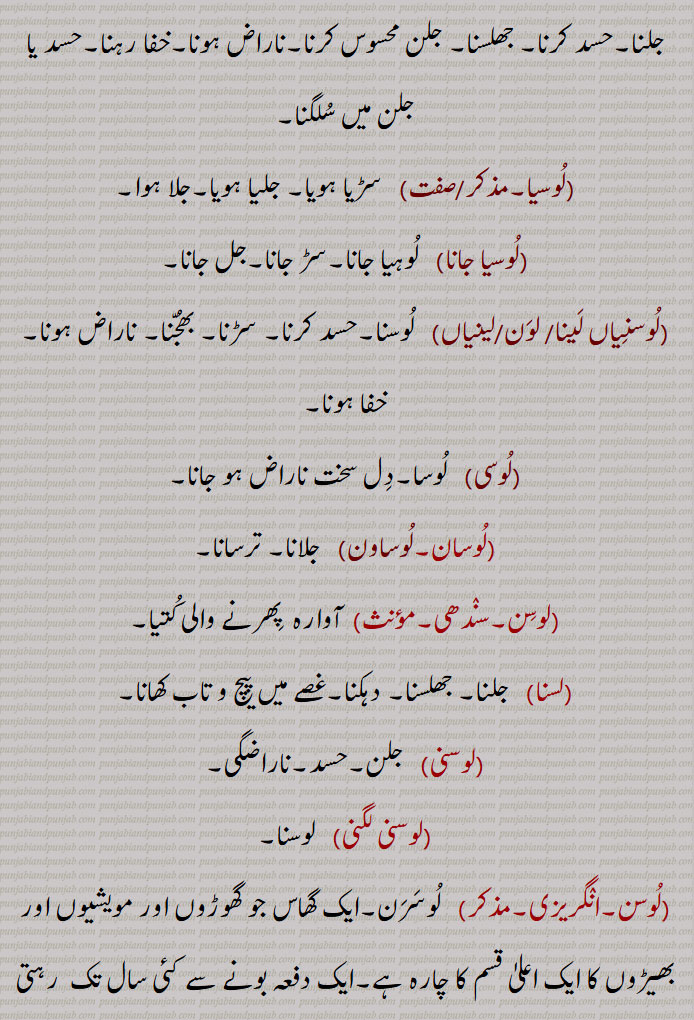 جلنا۔حسد کرنا۔ جھلسنا۔ جلن محسوس کرنا۔ناراض ہونا۔خفا رہنا۔حسد یا
جلن میں سُلگنا۔
(لُوسیا۔مذکر/صفت) سڑیا ہویا۔ جلیا ہویا۔جلا ہوا۔
(لُوسیا جانا) لُوہیا جانا۔سڑ جانا۔جل جانا۔
(لُوسنِیاں لَینا/ لوَن/لینیاں) لُوسنا۔حسد کرنا۔ سڑنا۔ بھُجّنا۔ ناراض ہونا۔
خفا ہونا۔
(لُوسی) لُوسا۔دِل سخت ناراض ہو جانا۔
(لُوسان۔لُوساون) جلانا۔ ترسانا۔
(لوسِن۔سنْدھی۔مؤنث) آوارہ پِھرنے والی کُتیا۔
(لسنا) جلنا۔ جھلسنا۔ دہکنا۔غصے میں پیچ و تاب کھانا۔
(لوسنی) جلن۔حسد۔ناراضگی۔
(لوسنی لگنی) لوسنا۔
(لُوسن۔انْگریزی۔مذکر) لُوسَرَن۔ایک گھاس جو گھوڑوں اور مویشیوں اور
بھیڑوں کا ایک اعلیٰ قسم کا چارہ ہے۔ایک دفعہ بونے سے کئی سال تک رہتی